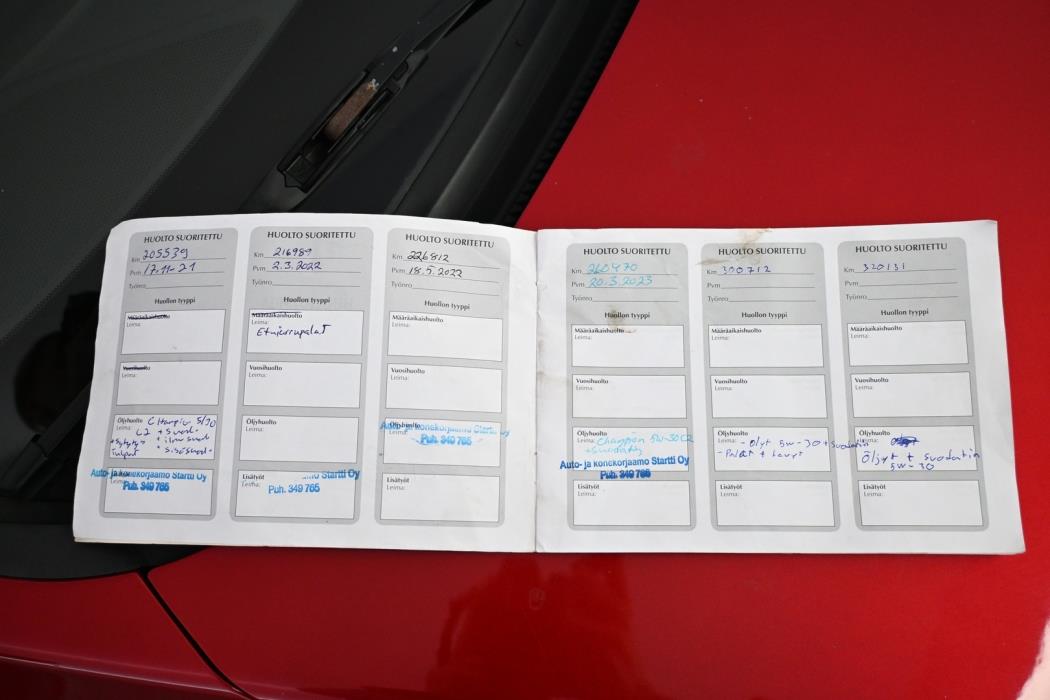 HUOLTO SUORITETTU
Km 205539
Pvm 17.11-21
Työnro
Huollon tyyppi
Määräaikaishuolto
Leima:
Vuosihuolto
Leima:
Öljyhuolto Champion 5/30
Leima: C2 + suod.
+ Sytytys + ilmasuod.
tulpat + sisäsuod.
Auto- ja konekorjaamo Startti Oy
Puh. 349 765
HUOLTO SUORITETTU
Km 216989
Pvm 2.3.2022
Työnro
Huollon tyyppi
Määräaikaishuolto
Leima:
Etujarrupalat
Vuosihuolto
Leima:
Öljyhuolto
Leima:
Startti Oy
Lisätyöt
Leima:
Puh. 349 765
HUOLTO SUORITETTU
Km 226812
Pvm 18.5.2022
Työnro
Huollon tyyppi
Määräaikaishuolto
Leima:
Vuosihuolto
Leima:
Öljyhuolto
Auto- ja konekorjaamo Startti Oy
Leima:
Puh. 349 765
Lisätyöt
Leima:
HUOLTO SUORITETTU
Km 260470
Pvm 20.3.2023
Työnro
Huollon tyyppi
Määräaikaishuolto
Leima:
Vuosihuolto
Leima:
Öljyhuolto
Leima: Champion 5W-30 C2
+suodatin
Auto- ja konekorjaamo Startti Oy
Puh. 349 765
Lisätyöt
Leima:
HUOLTO SUORITETTU
Km 300712
Pvm
Työnro
Huollon tyyppi
Määräaikaishuolto
Leima:
Vuosihuolto
Leima:
Öljyhuolto
Leima: - Öljyt 5w-30 + suodatin
- Palat +
Lisätyöt
Leima:
HUOLTO SUORITETTU
Km 320131
Pvm
Työnro
Huollon tyyppi
Määräaikaishuolto
Leima:
Vuosihuolto
Leima:
Öljyhuolto
Leima:
Öljyt + suodatin
5W-30
Lisätyöt
Leima: